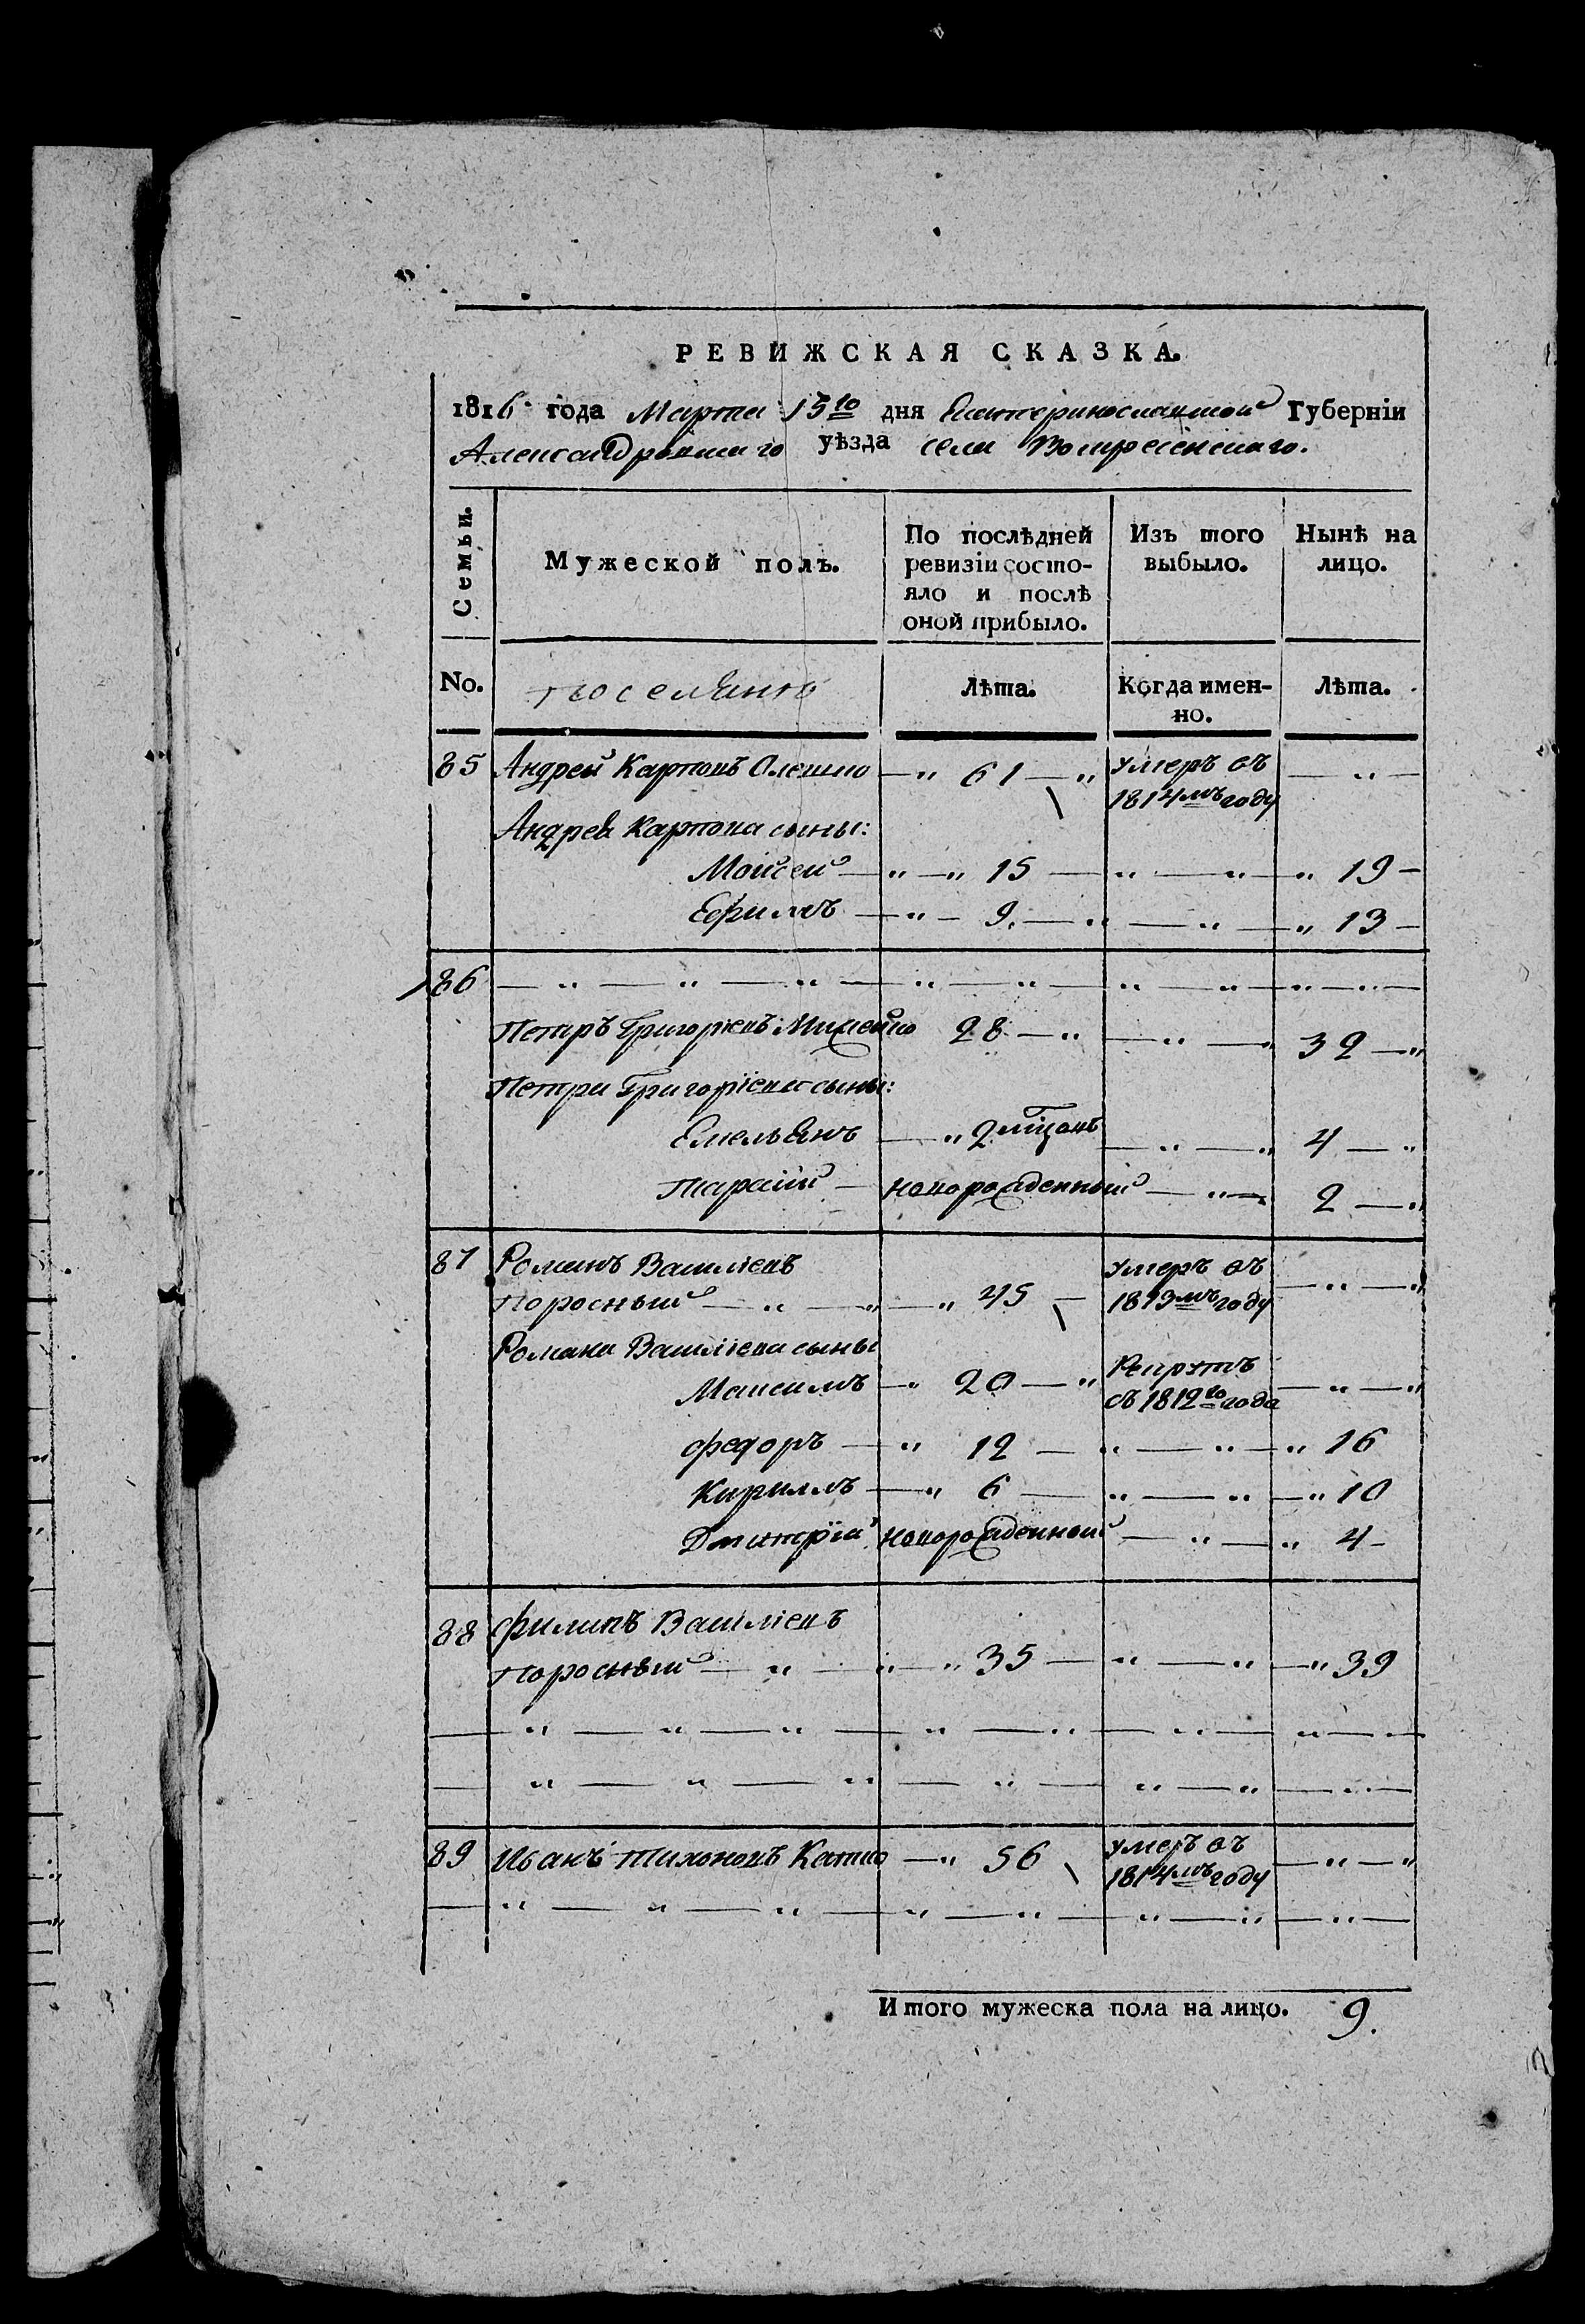 РЕВИЖСКАЯ СКАЗКА.
1816 года Марта 15го дня Екатеринославской Губерніи
Александровскаго уѣзда села Вознесенскаго.
Семьи.
Мужеской полъ.
По послѣдней ревизіи состо-
яло и послѣ
оной прибыло.
Изъ того
выбыло.
Нынѣ на
лицо.
No.
поселянъ
Лѣта.
Когда имен-
но.
Лѣта.
85 Андрей Карповъ Олешко — „ 61 — „ умеръ въ — „ —
1814мъ году
Андрея Карпова сыны:
Моисей — „ — „ 15 — „ — „ — „ 19 —
Ефимъ — „ — 9. — „ — „ — „ 13 —
86 — „ — „ — „ — „ — „ — „ — „ — „ — „ —
Петръ Григорьевъ 28 — „ — „ — „ 32 — „
Петра Григоріева сыны:
Емельянъ — „ 2 мѣсяцовъ — „ — „ 4 — „
Тарасій — новорожденный — „ — 2 — „
87 Романъ Василіевъ умеръ въ — „ — „
Поросный — „ — „ — „ 45 — 1813мъ году
Романа Василіева сыны
Максимъ — „ 20 — „ Рекрутъ — „ — „
съ 1812го года
Федоръ — „ 12 — „ — „ — „ 16
Кирилъ — „ 6 — „ — „ — „ 10
Дмитрій новорожденный — „ — „ 4 —
88 Филипъ Василіевъ
Поросный — „ — „ — „ 35 — „ — „ — „ 39
— „ — „ — „ — „ — „ — „ — „ — „ —
— „ — „ — „ — „ — „ — „ — „ —
89 Иванъ Тихоновъ — „ 56 умеръ въ — „ — „
1814мъ году
— „ — „ — „ — „ — „ — „ — „ — „ —
Итого мужеска пола на лицо. 9.